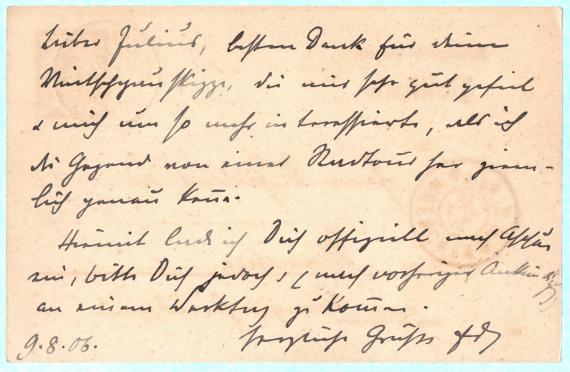 Lieber Julius, besten Dank für deine
skizze, die mir sehr gut gefiel
& mich um so mehr interessierte, als ich
die Gegend von einer Radtour her ziem-
lich genau kenne.
Hiermit lade ich Dich offiziell nach
ein, bitte Dich jedoch, (nach vorheriger
an einem Werktag zu kommen.
9.8.06. herzliche Grüße